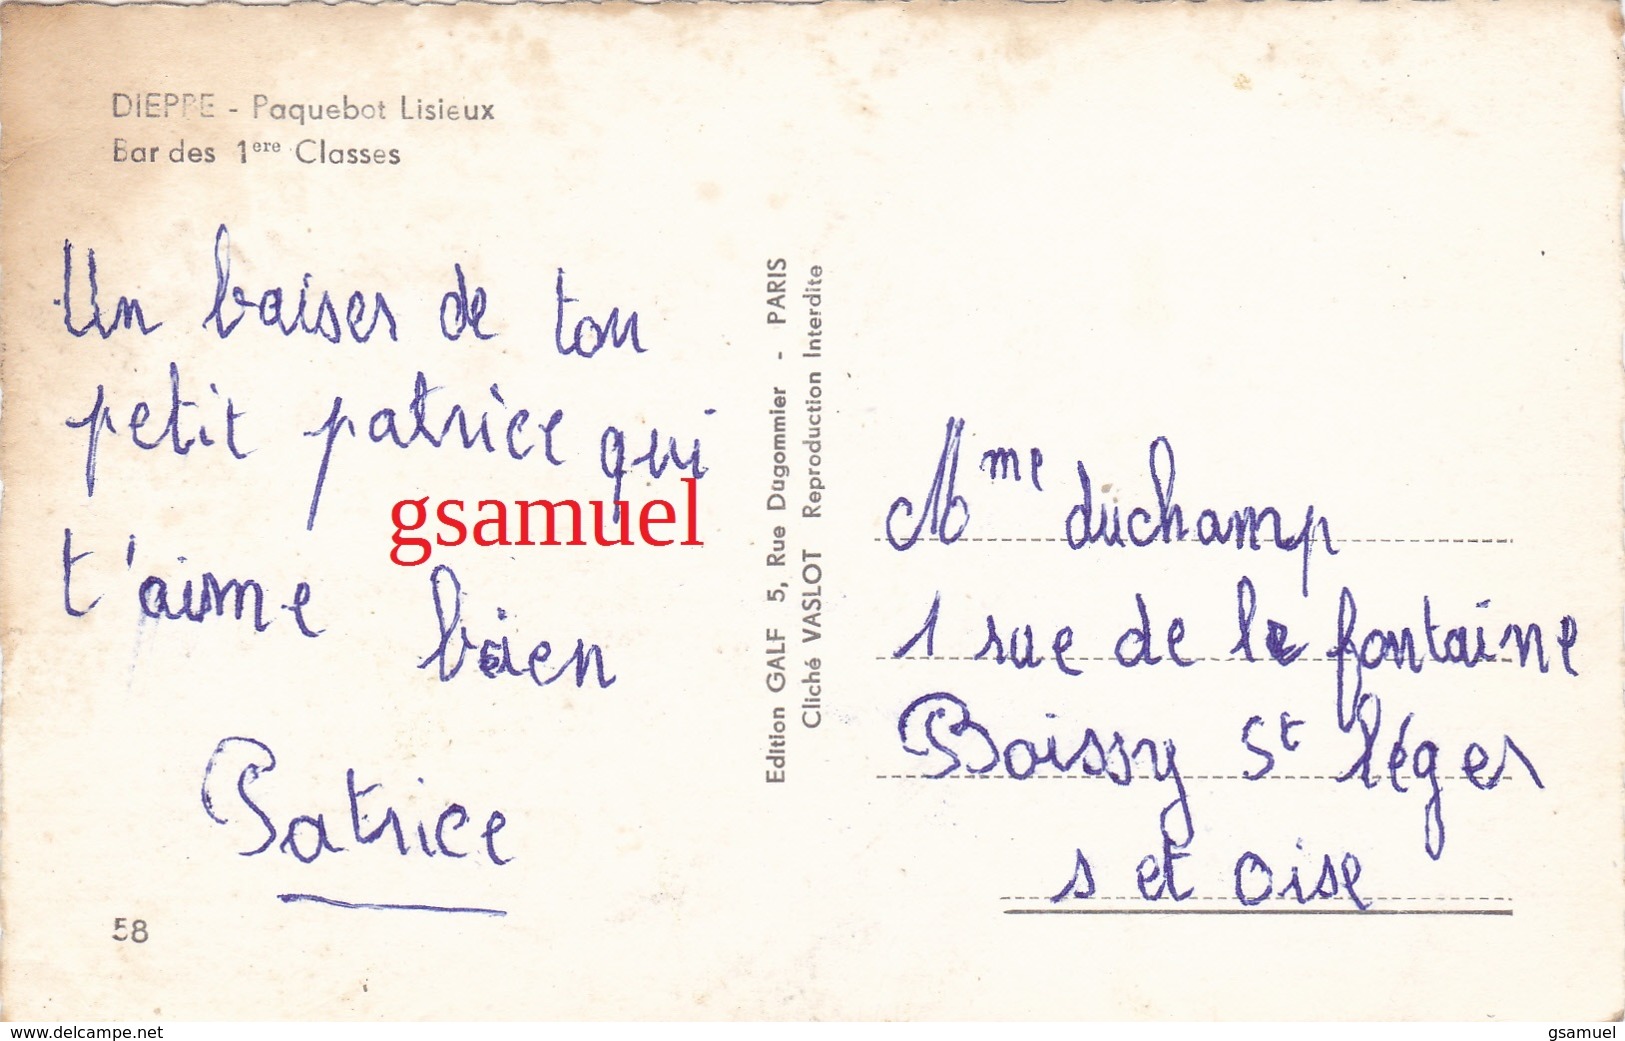 DIEPPE - Paquebot Lisieux
Bar des 1ere Classes
Un baiser de ton
petit patrice qui
t'aime bien
Patrice
58
Edition GALF 5, Rue Dugommier - PARIS
Cliché VASLOT Reproduction Interdite
Mme duchamp
1 rue de la fontaine
Boissy St léger
s et oise
gsamuel
www.delcampe.net
gsamuel